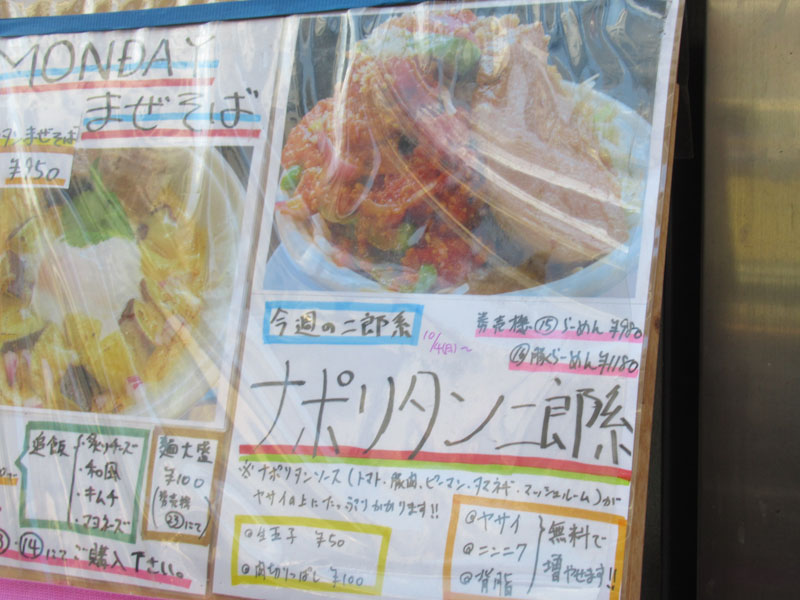 MONDAY
まぜそば
タンまぜそば
¥950
追飯
・炙りチーズ
・和風
・キムチ
・マヨネーズ
麺大盛
¥100
(券売機
㉓にて)
・⑭にてご購入下さい。
今週の二郎系
10/4(月)〜
券売機⑮らーめん¥980
⑯豚らーめん¥1180
ナポリタン二郎系
※ナポリタンソース(トマト・豚肉、ピーマン、タマネギ・マッシュルーム)が
ヤサイの上にたっぷりかかります!!
◎生玉子 ¥50
◎肉切りっぱし ¥100
◎ヤサイ
◎ニンニク
◎背脂
無料で
増やせます!!